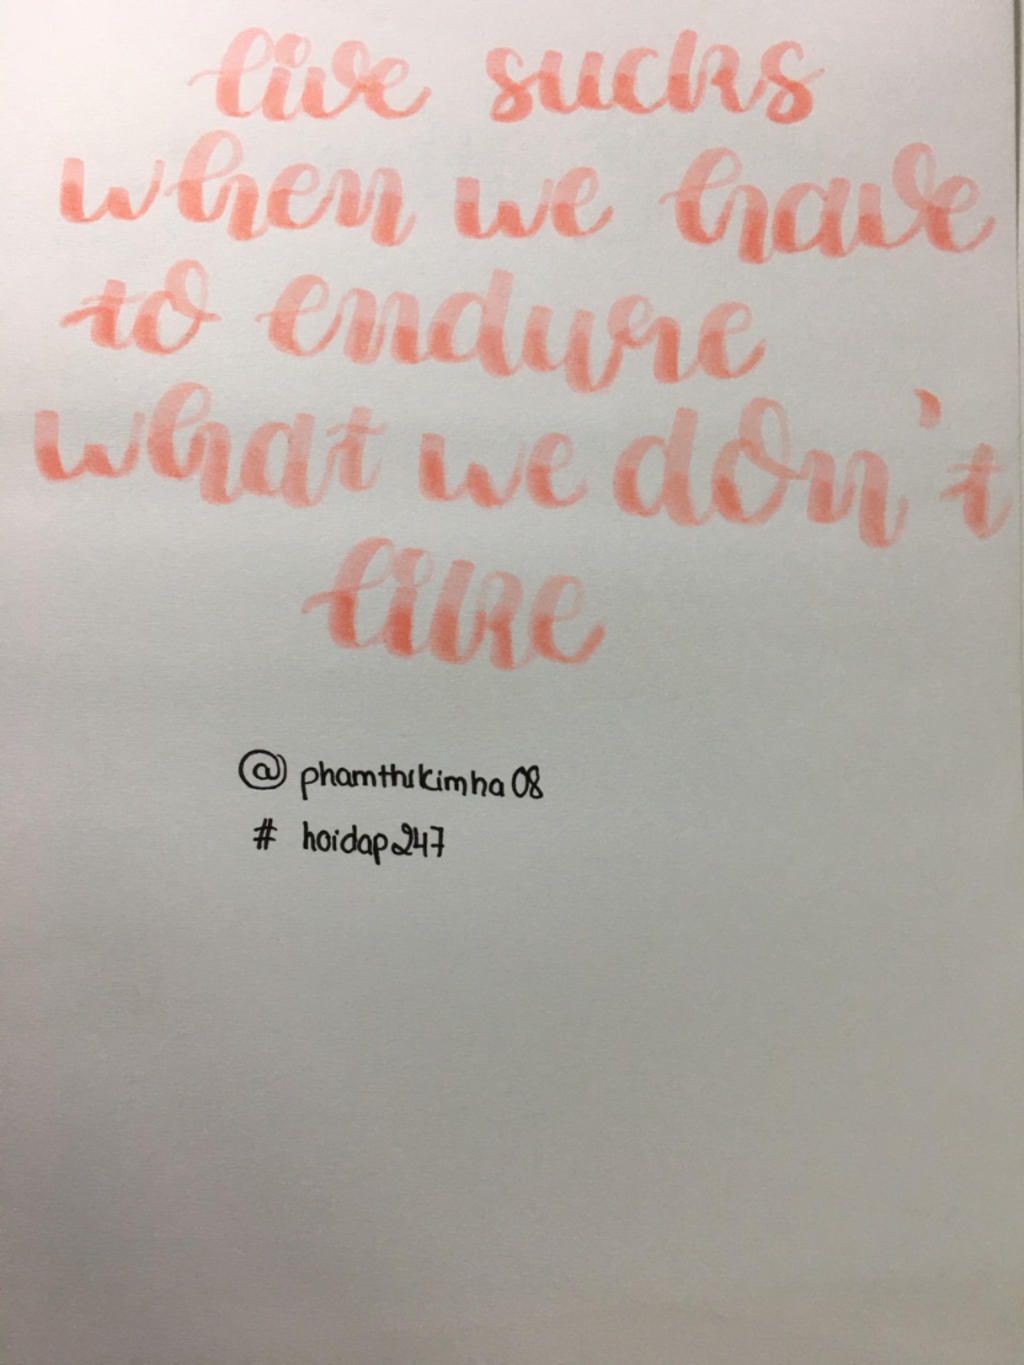 live sucks
when we have
to endure
what we don't
like
@phamthikimha08
# hoidap247